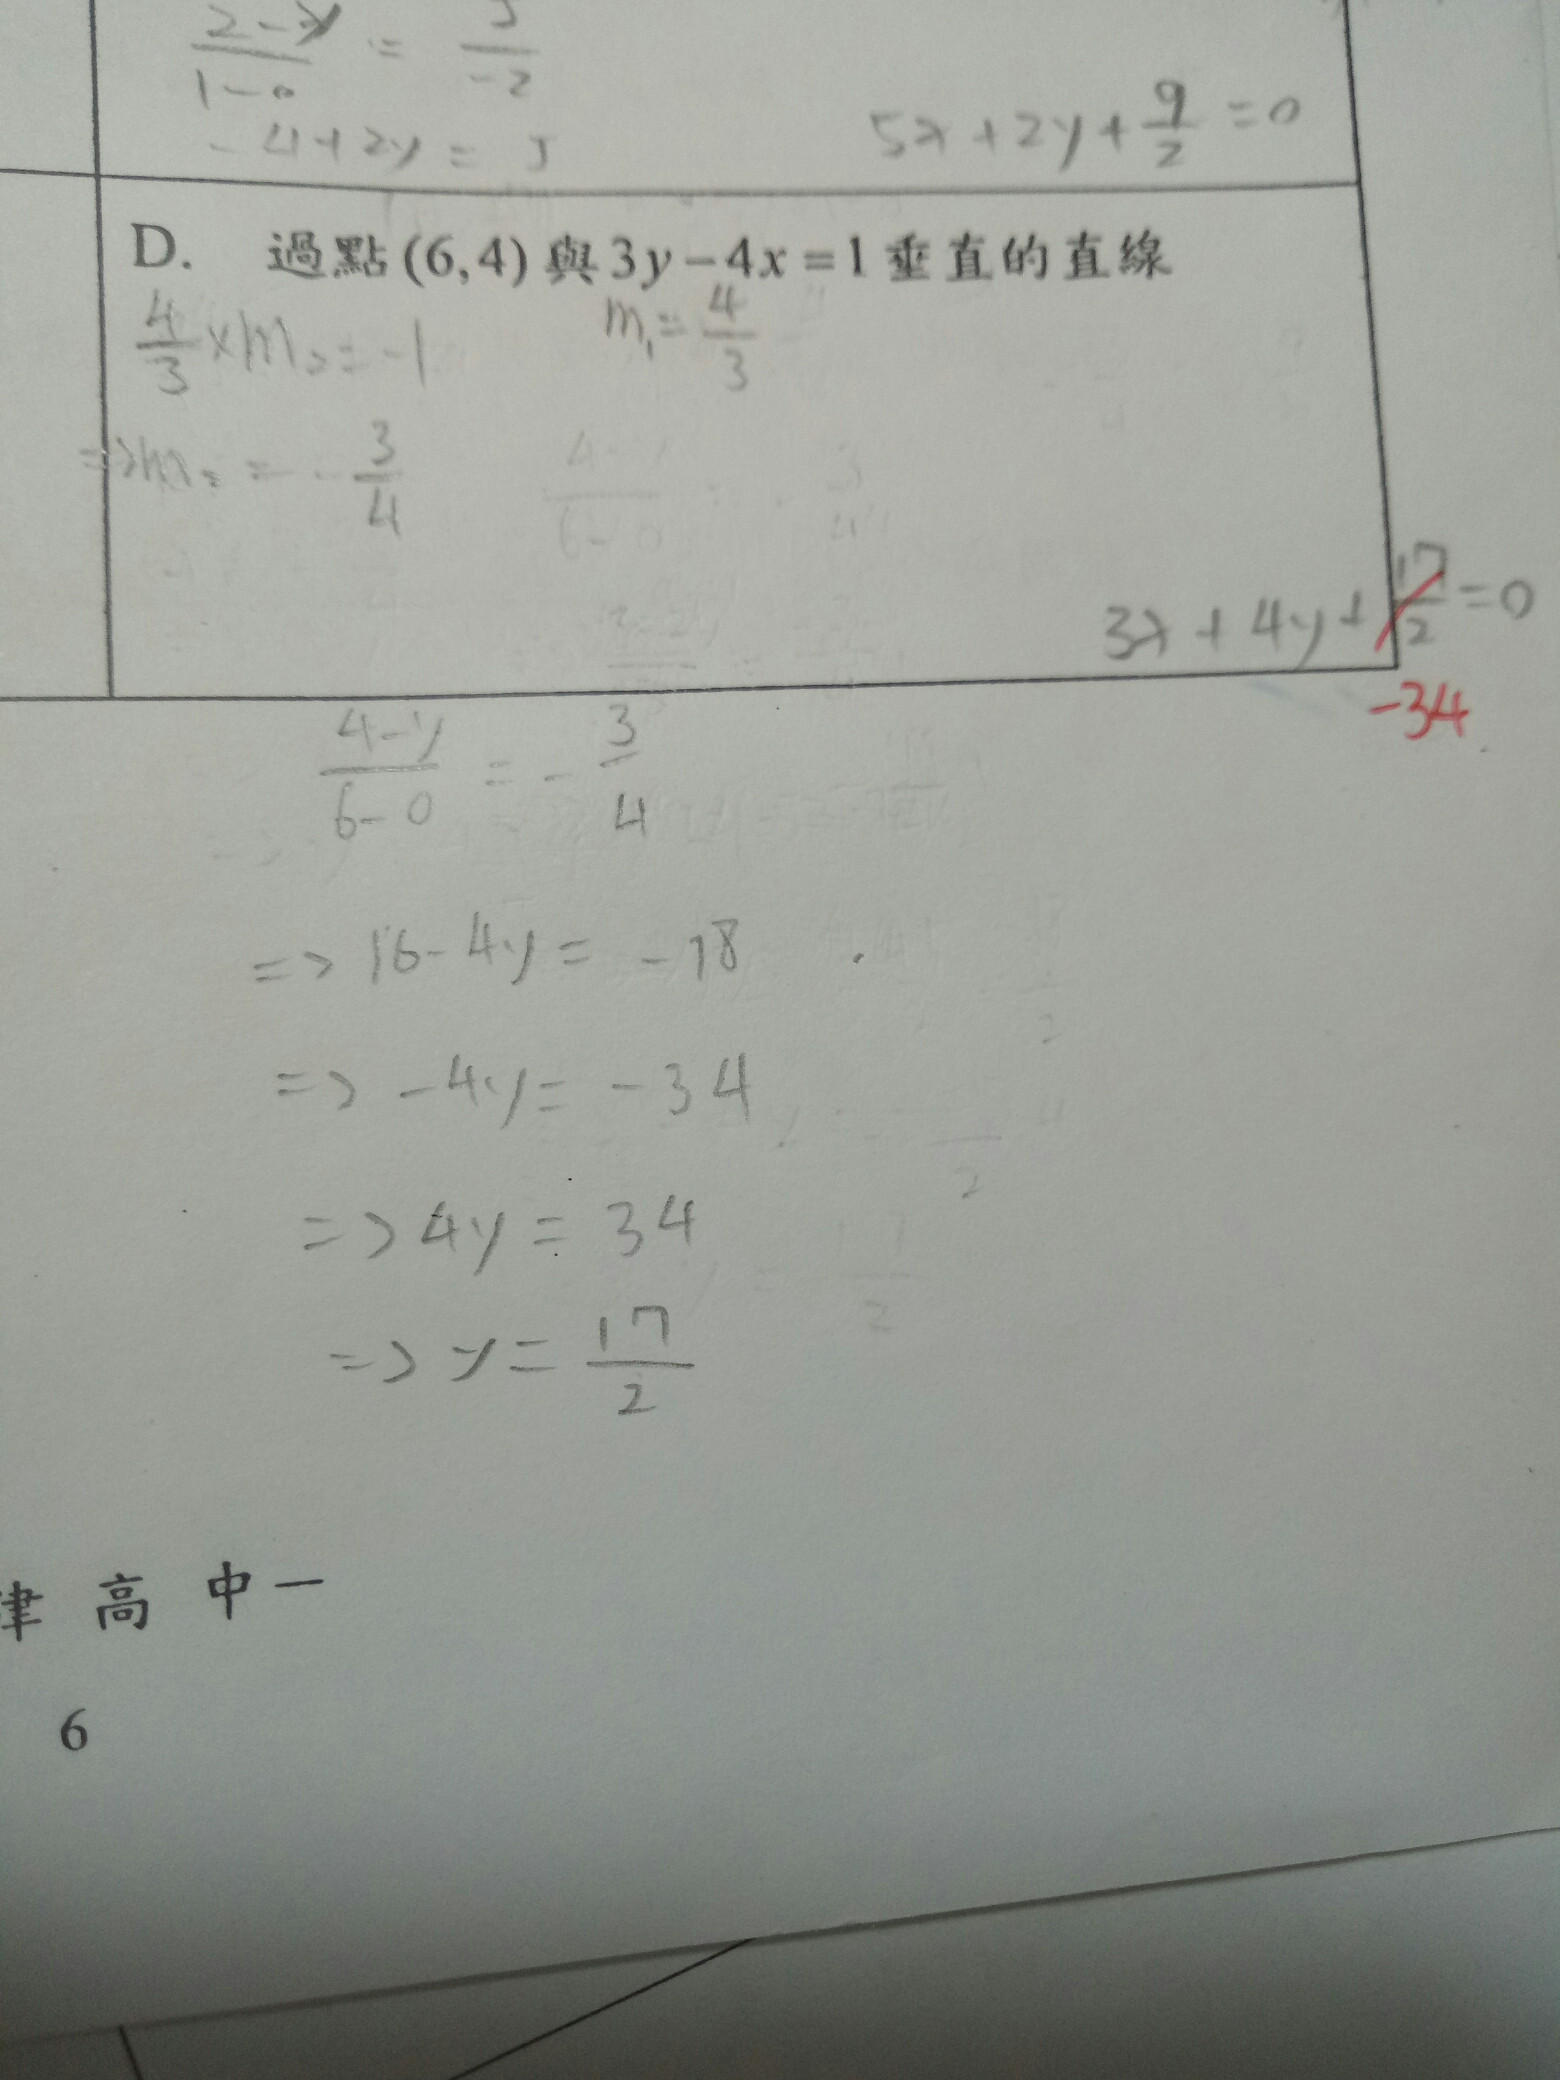 2-y/1-0 = 5/-2
-4+2y = 5
5x+2y+9/2=0
D. 過點(6,4)與3y-4x=1垂直的直線
4/3×m₂=-1
m₁=4/3
=>m₂=-3/4
3x+4y+17/2=0
-34
4-y/6-0 = -3/4
=>16-4y=-18
=>-4y=-34
=>4y=34
=>y=17/2
津高中一
6